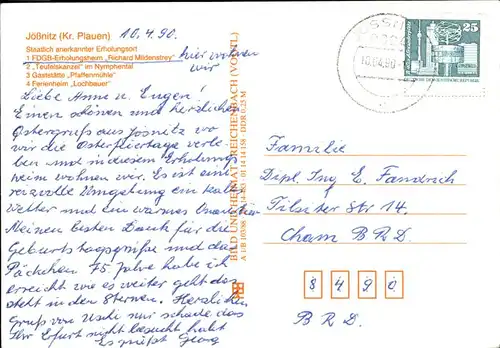 Jößnitz (Kr. Plauen) 10.4.90.
Staatlich anerkannter Erholungsort
1 FDGB-Erholungsheim „Richard Mildenstrey" hier wohnen
2 „Teufelskanzel" im Nymphental wir
3 Gaststätte „Pfaffenmühle"
4 Ferienheim „Lochbauer"
Liebe Anne u. Eugen!
Einen schönen und herzlichen
Ostergruß aus Jösnitz wo
wir die Osterfeiertage verle-
ben und in diesem Erholungs
heim wohnen wir. Es ist eine
reizvolle Umgebung ein kaltes
Wetter und ein warmes Quartier
Meinen besten Dank für die
Geburtstagsgrüße und das
Päckchen 75 Jahre habe ich
erreicht wie es weiter geht das
steht in den Sternen. Herzlichen
Gruß von Uschi nur schade das
Ihr Erfurt nicht besucht habt
Es grüßt Georg
BILD UND HEIMAT REICHENBACH (VOGTL)
A 1/B 103/86 01 14 14 158 DDR 0,25 M
10.04.90
25
Familie
Dipl. Ing E. Fandrich
Tilsiter Str 14.
Cham B R D.
8 4 9 0
B R D.